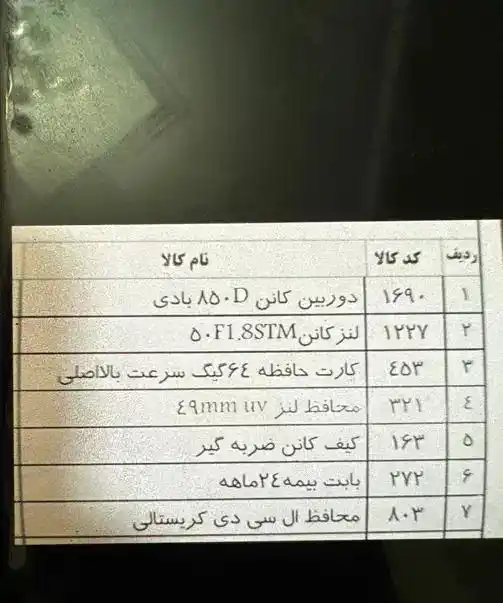 ردیف کد کالا نام کالا
۱ ۱۶۹۰ دوربین کانن ۸۵۰D بادی
۲ ۱۲۲۷ لنز کانن ۵۰F1.8STM
۳ ٤٥۳ کارت حافظه ۶٤گیگ سرعت بالااصلی
٤ ۳۲۱ محافظ لنز ٤۹mm uv
۵ ۱۶۳ کیف کانن ضربه گیر
۶ ۲۷۲ بابت بیمه۲٤ماهه
۷ ۸۰۳ محافظ ال سی دی کریستالی